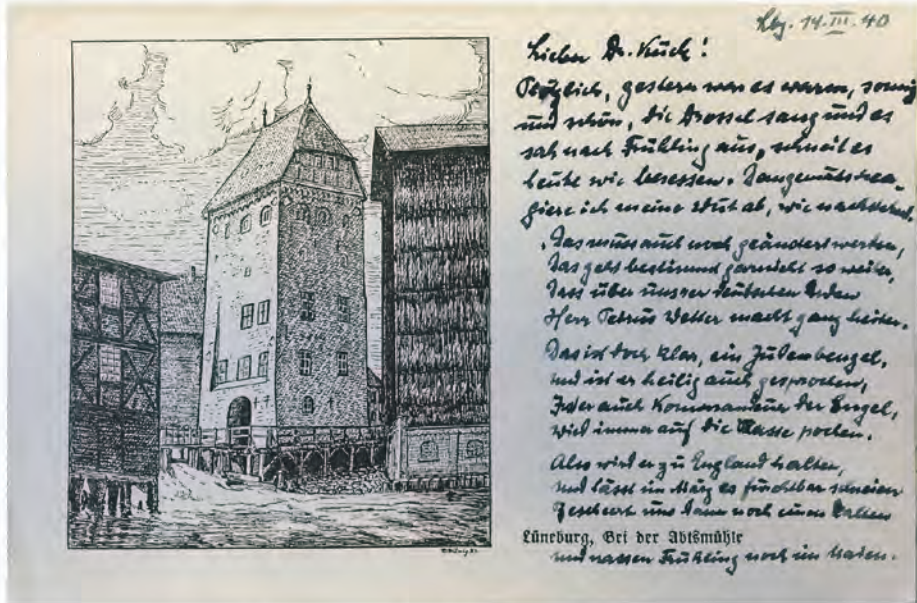 Lbg. 14.III.40
Lieber Dr. Kück!
Plözlich, gestern war es warm, sonnig
und schön, die Drossel sang und es
sah nach Frühling aus, schneit es
heute wie besessen. Demgemäss rea-
giere ich meine Wut ab, wie nachstehend.
Das muss auch noch geändert werden,
das geht bestimmt garnicht so weiter,
dass über unsrer deutschen Erden
Herr Petrus Wetter macht ganz heiter.
Das ist doch klar, ein Judenbengel,
und ist er heilig auch gesprochen,
der auch Kommandeur der Engel,
wird immer auf die Rasse pochen.
Also wird er zu England halten,
und lässt im März es furchtbar schneien
beschert uns dann noch einen kalten
Lüneburg, Bei der Abtsmühle
und nassen Frühling noch im Maien.